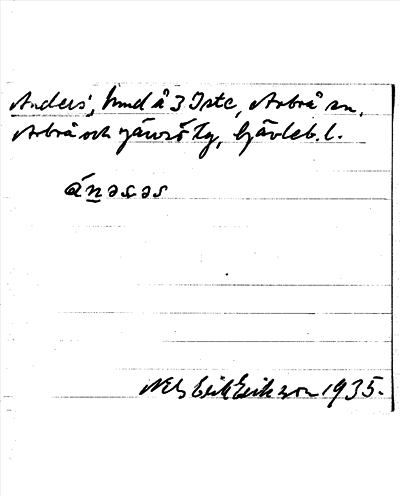 Anders', hmd å 3 Iste, Arbrå sn,
Arbrå och Järvsö tg, Gävleb. l.
ánəsəs
Nils Erik Erikson 1935.